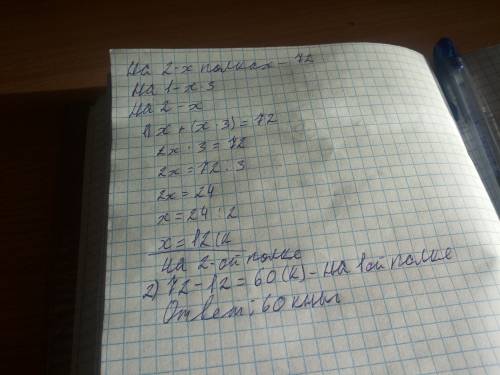 На 2-х полках – 72
На 1 – x · 3
На 2 – x
1) x + (x · 3) = 72
2x · 3 = 72
2x = 72 : 3
2x = 24
x = 24 : 2
x = 12 (к
на 2-ой полке
2) 72 – 12 = 60 (к) – на 1 ой полке
Ответ: 60 книг